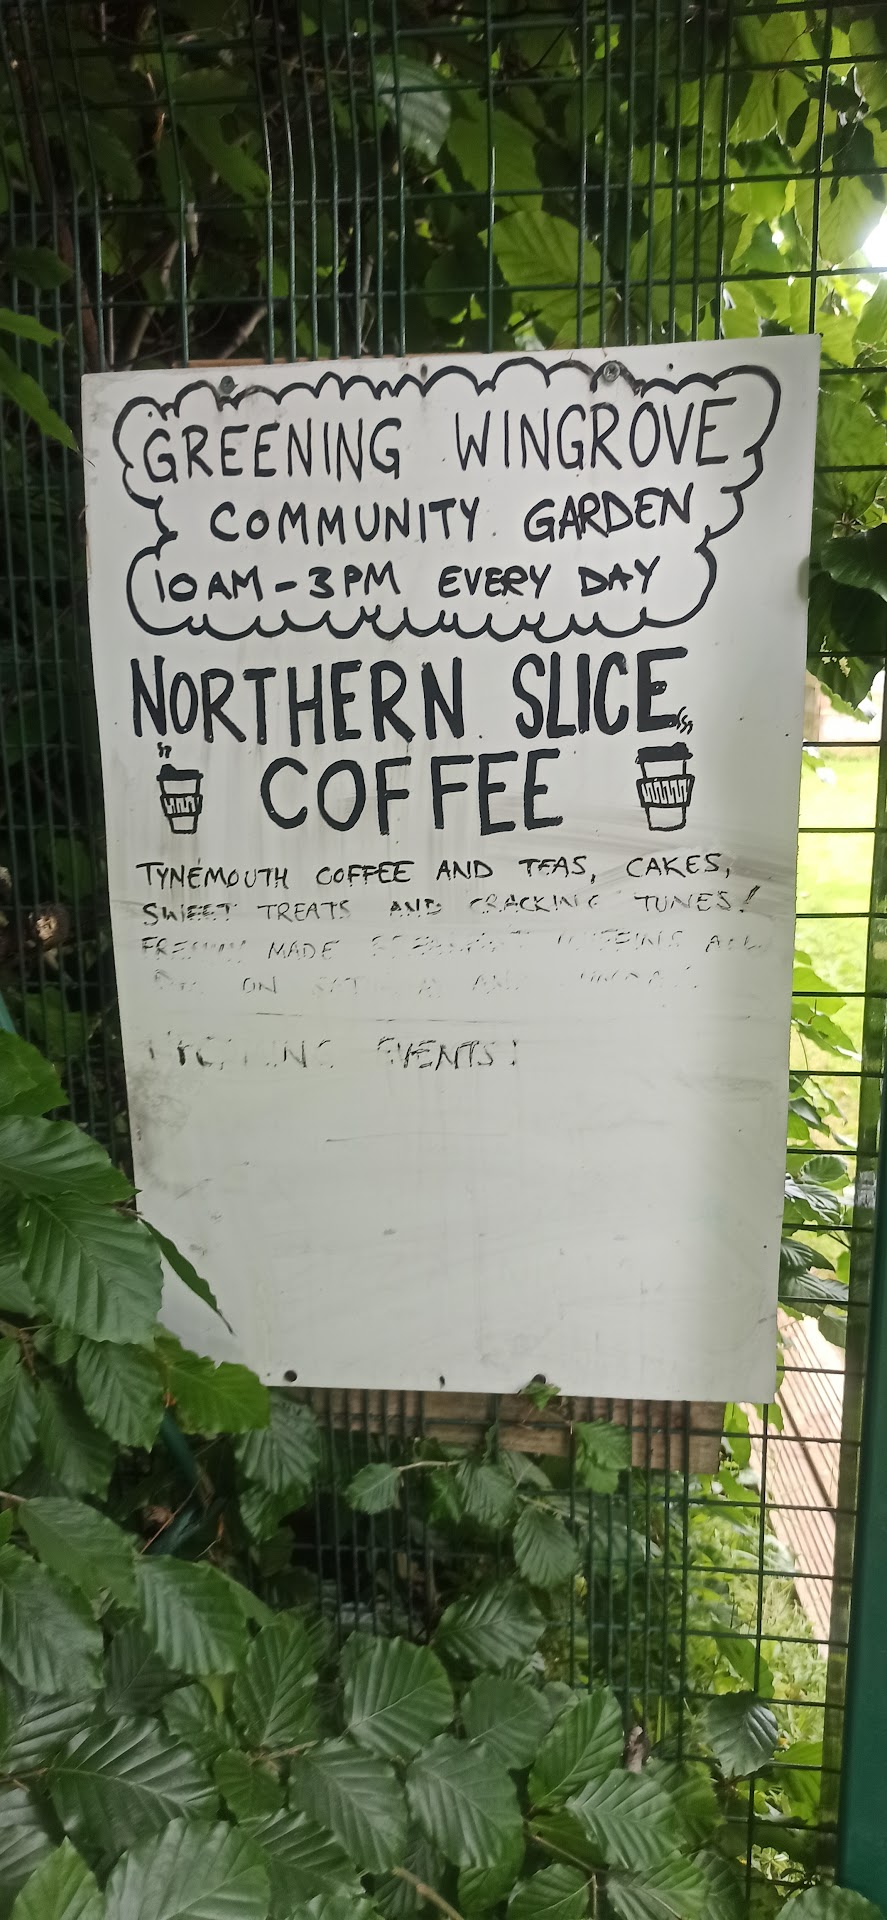 GREENING WINGROVE
COMMUNITY GARDEN
10AM-3PM EVERY DAY
NORTHERN SLICE
COFFEE
TYNEMOUTH COFFEE AND TEAS, CAKES,
SWEET TREATS AND CRACKING TUNES!
FRESHLY MADE BREAKFAST MUFFINS ALL
ON AND
EVENTS!